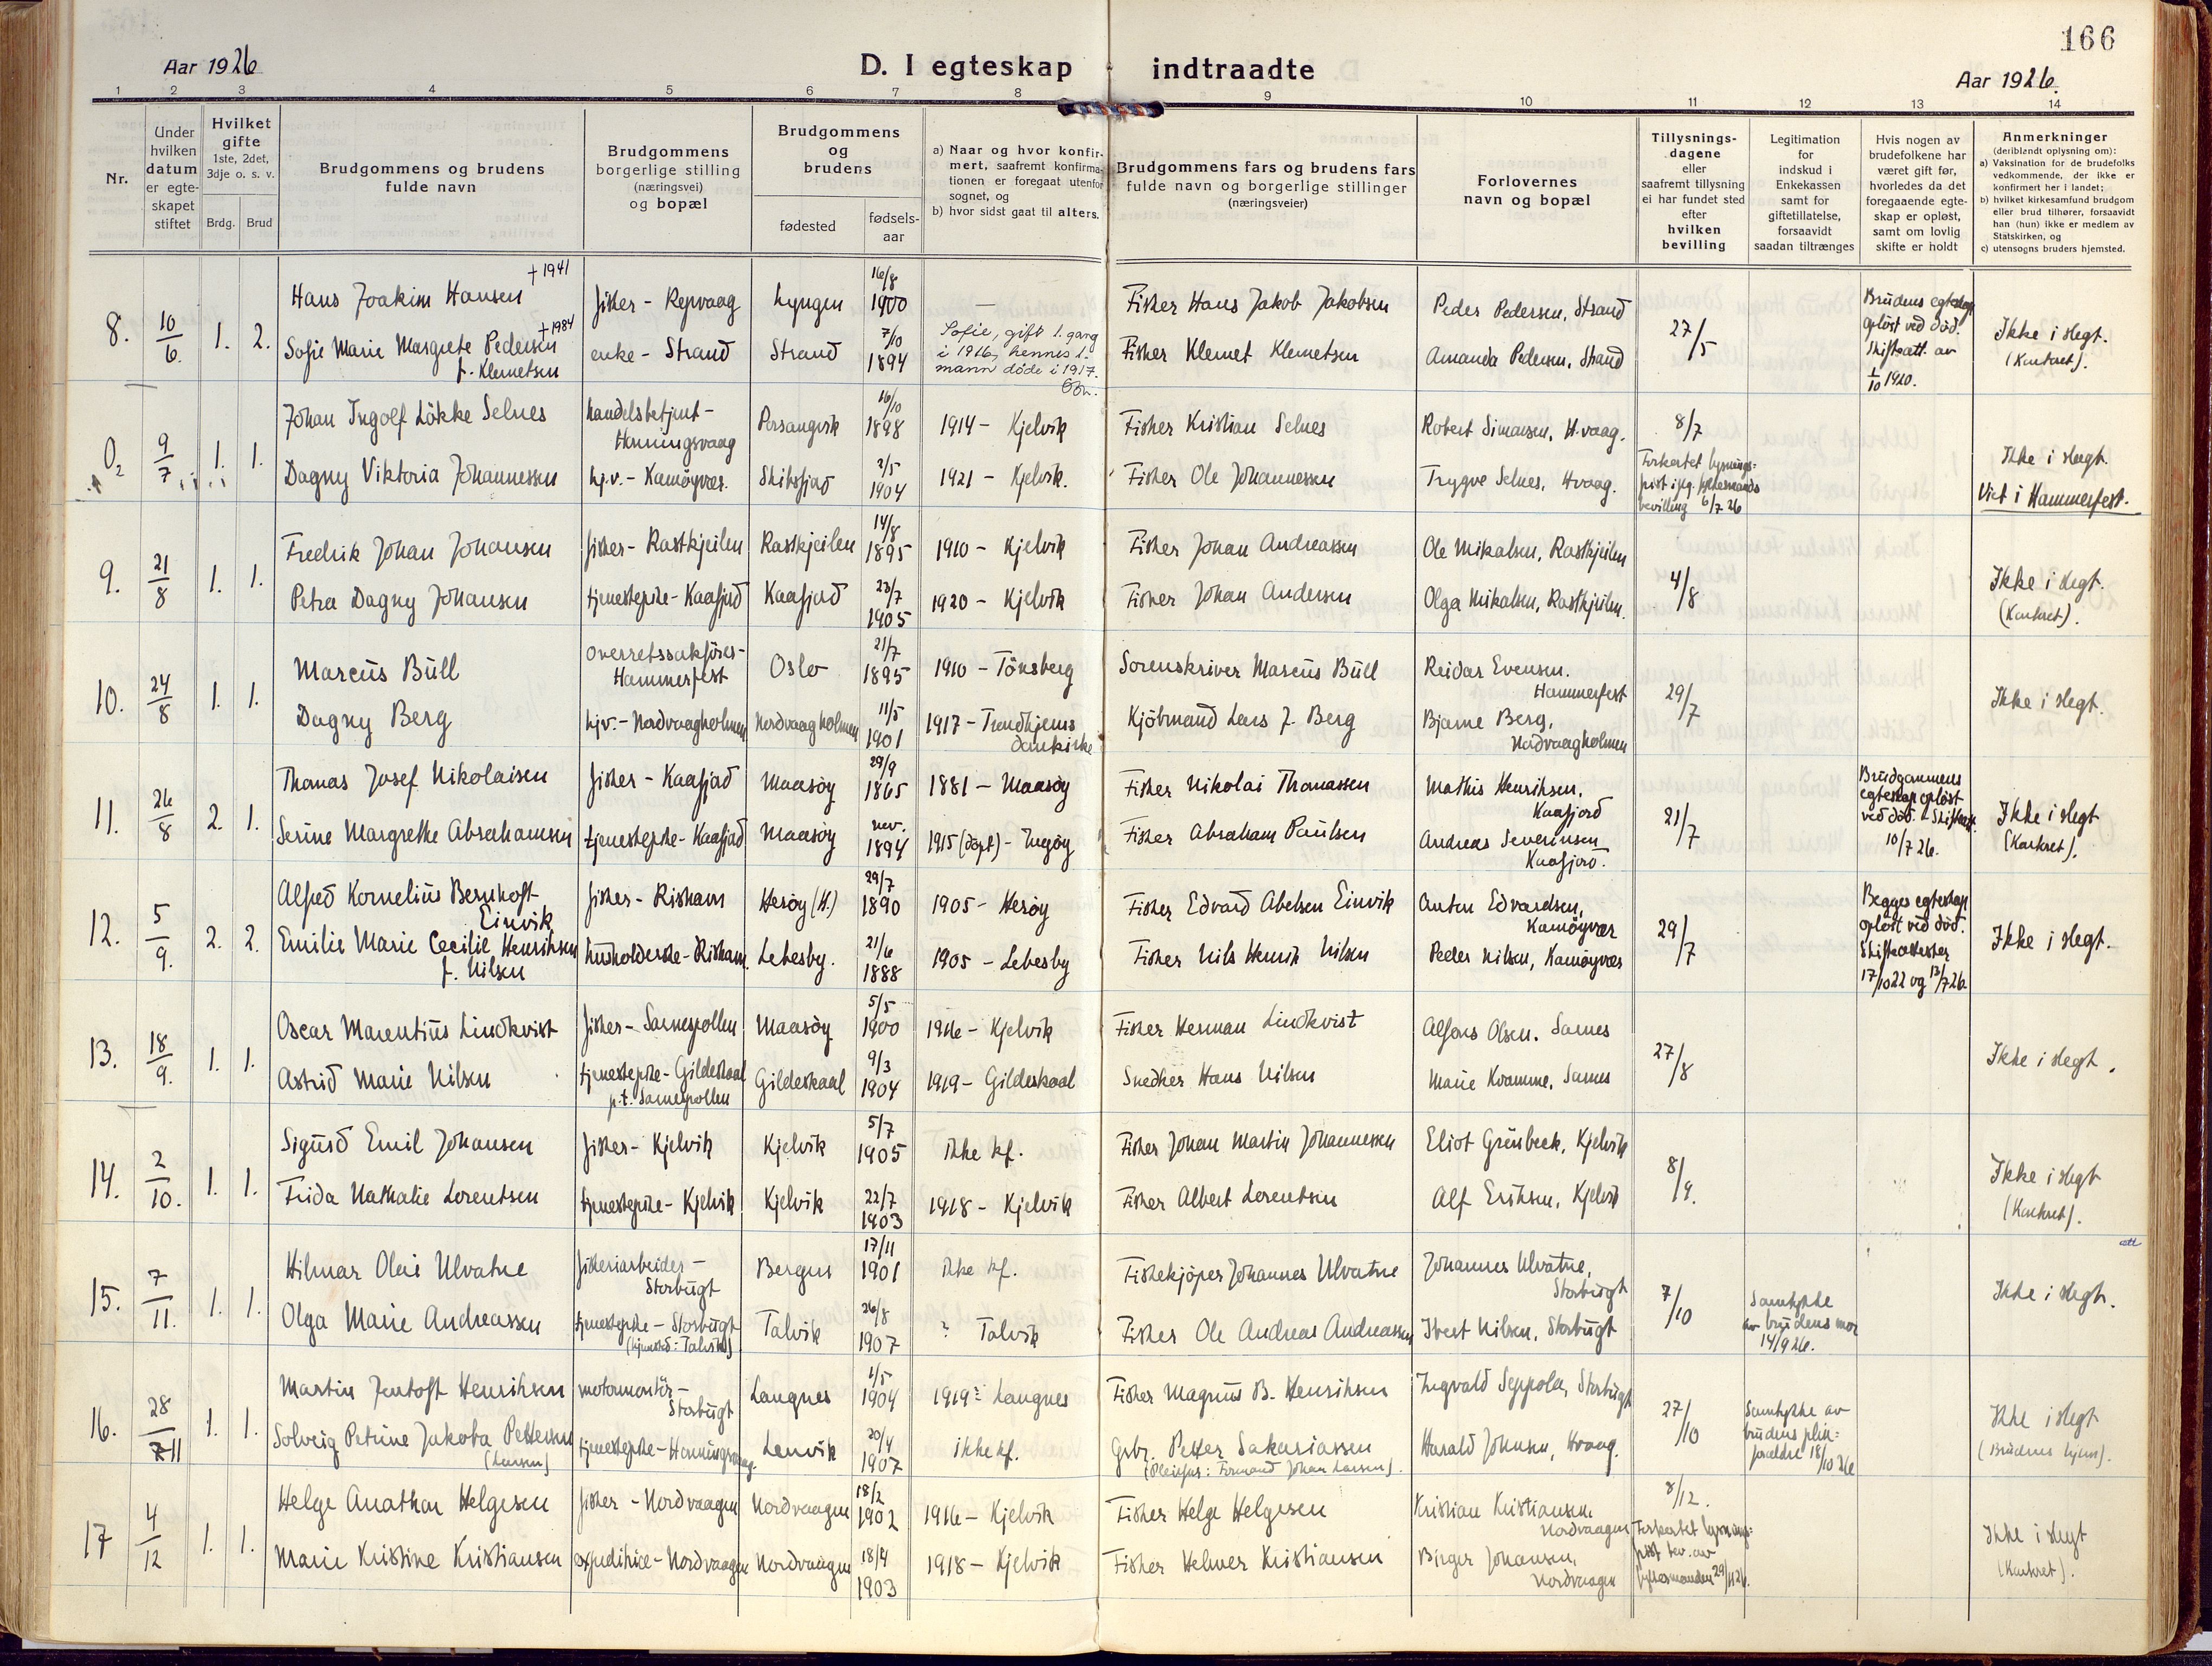 166
Aar 1926
D. I egteskap indtraadte
Aar 1926.
1 2 3 4 5 6 7 8 9 10 11 12 13 14
Nr.
Under hvilken datum er egteskapet stiftet
Hvilket gifte
1ste, 2det, 3dje o. s. v.
Brdg. Brud
Brudgommens og brudens fulde navn
Brudgommens borgerlige stilling (næringsvei) og bopæl
Brudgommens og brudens
fødested
fødsels-aar
a) Naar og hvor konfirmert, saafremt konfirmationen er foregaat utenfor sognet, og
b) hvor sidst gaat til alters.
Brudgommens fars og brudens fars fulde navn og borgerlige stillinger (næringsveier)
Forlovernes navn og bopæl
Tillysnings-dagene eller saafremt tillysning ei har fundet sted efter hvilken bevilling
Legitimation for indskud i Enkekassen samt for giftetillatelse, forsaavidt saadan tiltrænges
Hvis nogen av brudefolkene har været gift før, hvorledes da det foregaaende egteskap er opløst, samt om lovlig skifte er holdt
Anmerkninger (deriblandt oplysning om):
a) Vaksination for de brudefolks vedkommende, der ikke er konfirmert her i landet;
b) hvilket kirkesamfund brudgom eller brud tilhører, forsaavidt han (hun) ikke er medlem av Statskirken, og
c) utensogns bruders hjemsted.
8. 10/6. 1. 2.
Hans Joakim Hansen † 1941
fisker - Repvaag
Lyngen
16/8 1900
—
Fisker Hans Jakob Jakobsen
Peder Pedersen, Strand
Sofie Marie Margrete Pedersen † 1984
f. Klemetsen
enke - Strand
Strand
7/10 1894
Sofie, gift 1. gang
i 1916, hennes 1.
mann døde i 1917.
Fisker Klemet Klemetsen
Amanda Pedersen, Strand
27/5
Brudens egteskap
opløst ved död.
Skifteatt. av
1/10 1920.
Ikke i slegt.
(Konkret).
9/7 1. 1.
Johan Ingolf Lökke Selnes
handelsbetjent -
Honningsvaag
Porsangvik
16/10 1898
1914 - Kjelvik
Fisker Kristian Selnes
Robert Simonsen, H.vaag.
Dagny Viktoria Johannessen
hj.v. - Kamøyvær.
Skibsfjord
2/5 1904
1921 - Kjelvik.
Fisker Ole Johannessen
Trygve Selnes, Hvaag.
8/7
Forkortet lysnings-
frist ifølg. fylkesmands
bevilling 6/7 26
Ikke i slegt.
Viet i Hammerfest.
9. 21/8 1. 1.
Fredrik Johan Johansen
fisker - Rastkjeilen
Rastkjeilen
14/8 1895
1910 - Kjelvik
Fisker Johan Andreassen
Ole Mikalsen, Rastkjeilen
Petra Dagny Johansen
tjenestepike - Kaafjord
Kaafjord
23/7 1905
1920 - Kjelvik
Fisker Johan Andersen
Olga Mikalsen, Rastkjeilen.
4/8
Ikke i slegt.
(Konkret).
10. 24/8 1. 1.
Marcus Bull
overretssakfører -
Hammerfest
Oslo
21/7 1895
1910 - Tönsberg
Sorenskriver Marcus Bull
Reidar Evensen.
Hammerfest
Dagny Berg
hjv. - Nordvaagholmen
Nordvaagholmen
11/5 1901
1917 - Trondhjems
domkirke
Kjöbmand Lars J. Berg
Bjarne Berg,
Nordvaagholmen
29/7
Ikke i slegt.
11. 26/8 2. 1.
Thomas Josef Nikolaisen
fisker - Kaafjord
Maasøy
29/9 1865
1881 - Maasøy
Fisker Nikolai Thomassen
Mathis Henriksen,
Kaafjord
Serine Margrethe Abrahamsen
tjenestepike - Kaafjord
Maasøy
nov. 1894
1915 (döpt) - Ingøy
Fisker Abraham Paulsen
Andreas Severinsen
Kaafjord.
21/7
Brudgommens
egteskap opløst
ved död. Skifteatt.
10/7 26.
Ikke i slegt
(Konkret).
12. 5/9. 2. 2.
Alfred Kornelius Bernhoft
Einvik
fisker - Rishavn
Herøy (H.)
29/7 1890
1905 - Herøy
Fisker Edvard Abelsen Einvik
Anton Edvardsen,
Kamøyvær
Emilie Marie Cecilie Henriksen
f. Nilsen
husholderske - Rishavn.
Lebesby.
21/6 1888
1905 - Lebesby
Fisker Nils Henrik Nilsen
Peder Nilsen, Kamøyvær
29/7
Begges egteskap
opløst ved død.
Skifteattester
17/10 22 og 13/7 26.
Ikke i slegt.
13. 18/9. 1. 1.
Oscar Marentius Lindkvist
fisker - Sarnespollen
Maasøy
5/5 1900
1916 - Kjelvik
Fisker Herman Lindkvist
Alfons Olsen. Sarnes
Astrid Marie Nilsen
tjenestepike - Gildeskaal
p.t. Sarnespollen
Gildeskaal
9/3 1904
1919 - Gildeskaal
Snedker Hans Nilsen
Marie Kvamme, Sarnes
27/8
Ikke i slegt.
14. 2/10. 1. 1.
Sigurd Emil Johansen
fisker - Kjelvik
Kjelvik
5/7 1905
ikke kf.
Fisker Johan Martin Johannessen
Eliot Grünbeck, Kjelvik
Frida Nathalie Lorentsen
tjenestepike - Kjelvik
Kjelvik
22/7 1903
1918 - Kjelvik
Fisker Albert Lorentsen
Alf Eriksen, Kjelvik
8/9.
Ikke i slegt
(Konkret).
att
15. 7/11. 1. 1.
Hilmar Olai Ulvatne
fiskeriarbeider -
Storbugt
Bergen
17/11 1901
ikke kf.
Fiskekjöper Johannes Ulvatne
Johannes Ulvatne,
Storbugt
Olga Marie Andreassen
tjenestepike - Storbugt
(hjemsted: Talvik)
Talvik
26/8 1907
? Talvik
Fisker Ole Andreas Andreassen
Ivert Nilsen, Storbugt
7/10
Samtykke
av brudens mor
14/9 26.
Ikke i slegt.
16. 28/11 1. 1.
Martin Jentoft Henriksen
motormontör -
Storbugt
Langnes
1/5 1904
1919? Langnes
Fisker Magnus B. Henriksen
Ingvald Seppola, Storbugt
Solveig Petrine Jakoba Pettersen
(Larsen)
tjenestepike - Honningsvaag.
Lenvik
20/4 1907
ikke kf.
Gbr. Petter Sakariassen
(Pleiefar: Formand Johan Larsen).
Harald Johnsen, Hvaag.
27/10
Samtykke av
brudens pleie-
forældre 18/10 26
Ikke i slegt
(Brudens hjem).
17 4/12 1. 1.
Helge Anathon Helgesen
fisker - Nordvaagen
Nordvaagen
18/2 1902
1916 - Kjelvik
Fisker Helge Helgesen
Kristian Kristiansen.
Nordvaagen
Marie Kristine Kristiansen
expeditrice - Nordvaagen
Nordvaagen
18/4 1903
1918 - Kjelvik
Fisker Helmer Kristiansen
Birger Johansen,
Nordvaagen
8/12.
Forkortet lysnings-
frist bev. av
fylkesmanden 29/11 26.
Ikke i slegt
(Konkret).